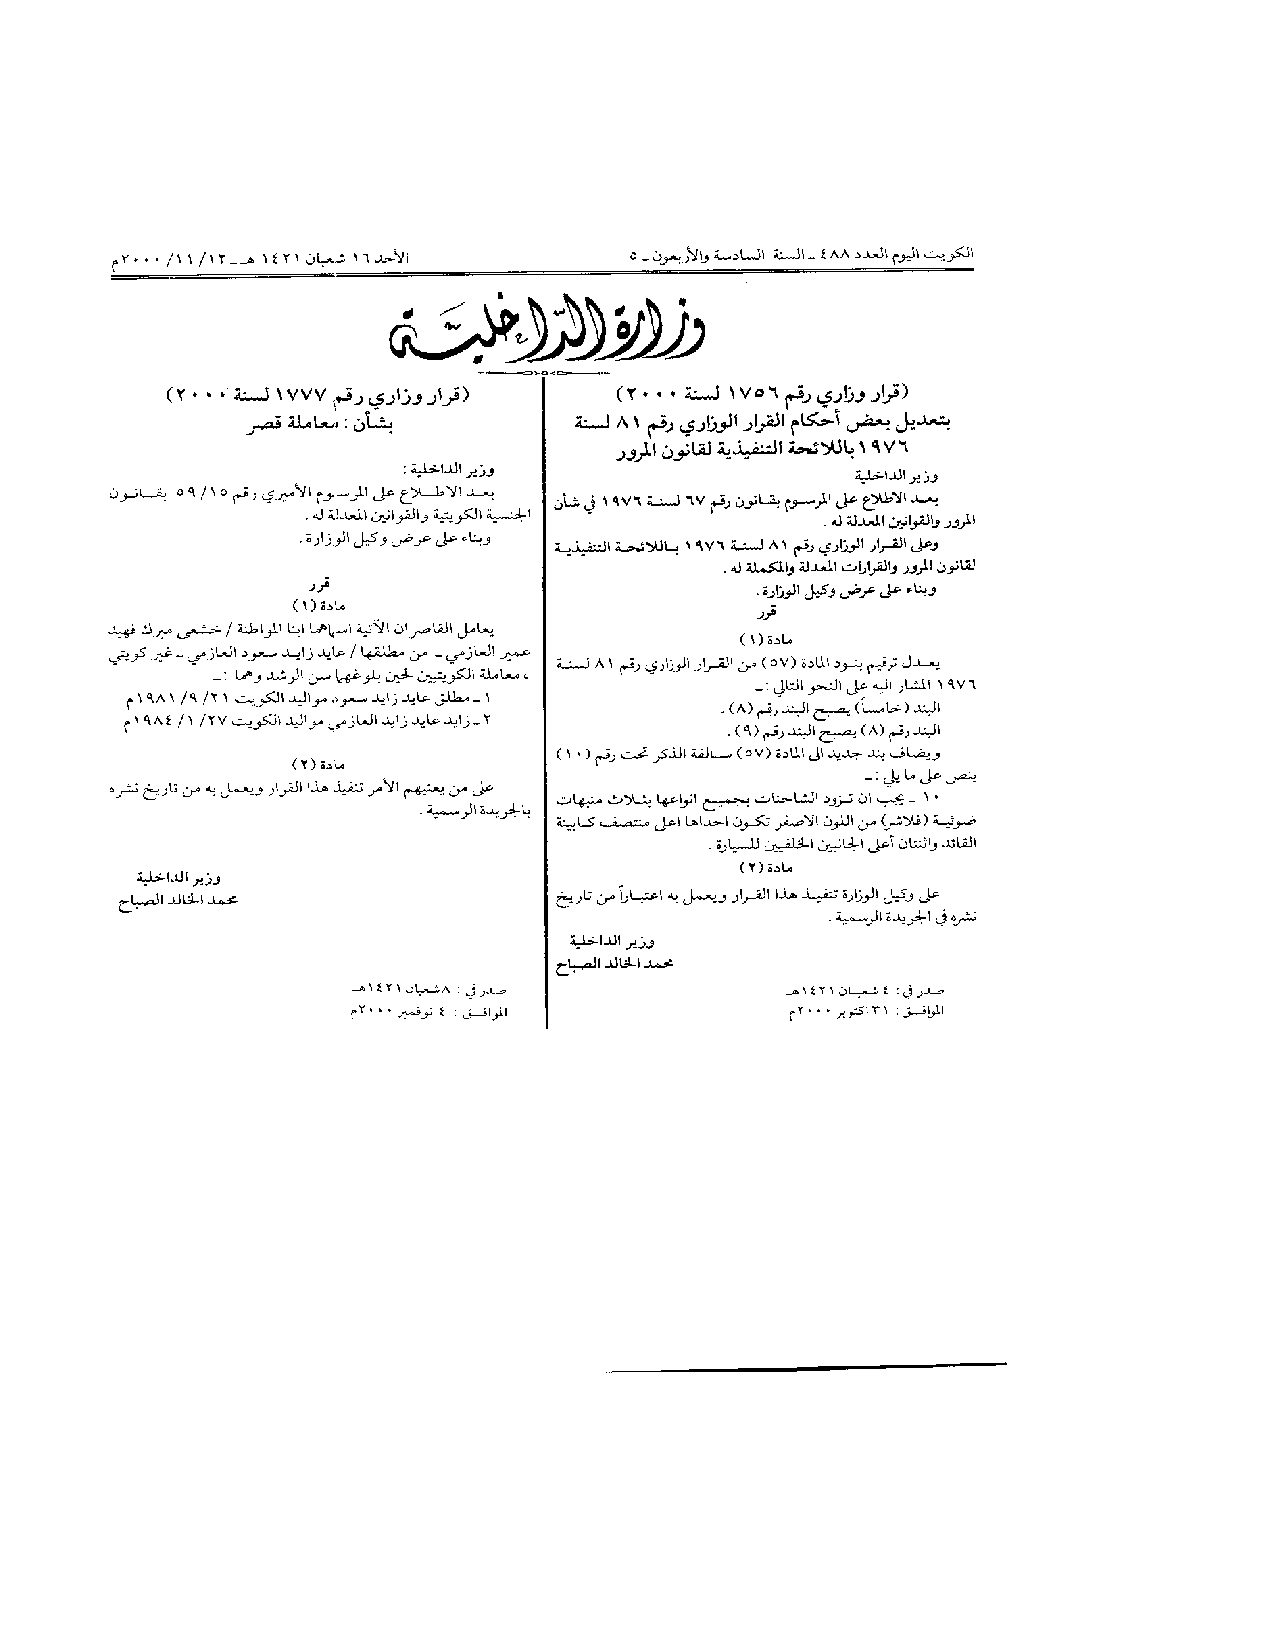 الكويت اليوم العدد ٤٨٨ ــ السنة السادسة والأربعون ــ ٥
الأحد ١٦ شعبان ١٤٢١ هـ ــ ١٢ /١١ /٢٠٠٠م
وزارة الداخلية
(قرار وزاري رقم ١٧٥٦ لسنة ٢٠٠٠)
بتعديل بعض أحكام القرار الوزاري رقم ٨١ لسنة
١٩٧٦ باللائحة التنفيذية لقانون المرور
وزير الداخلية
بعد الاطلاع على المرسوم بقانون رقم ٦٧ لسنة ١٩٧٦ في شأن
المرور والقوانين المعدلة له .
وعلى القرار الوزاري رقم ٨١ لسنة ١٩٧٦ باللائحة التنفيذية
لقانون المرور والقرارات المعدلة والمكملة له .
وبناء على عرض وكيل الوزارة .
قرر
مادة (١)
يعدل ترقيم بنود المادة (٥٧) من القرار الوزاري رقم ٨١ لسنة
١٩٧٦ المشار اليه على النحو التالي :ــ
البند (خامساً) يصبح البند رقم (٨) .
البند رقم (٨) يصبح البند رقم (٩) .
ويضاف بند جديد الى المادة (٥٧) سالفة الذكر تحت رقم (١٠)
ينص على ما يلي :ــ
١٠ ــ يجب ان تزود الشاحنات بجميع انواعها بثلاث منبهات
ضوئية (فلاشر) من اللون الاصفر تكون احداها اعلى منتصف كابينة
القائد واثنتان أعلى الجانبين الخلفيين للسيارة .
مادة (٢)
على وكيل الوزارة تنفيذ هذا القرار ويعمل به اعتباراً من تاريخ
نشره في الجريدة الرسمية .
وزير الداخلية
محمد الخالد الصباح
صدر في : ٤ شعبان ١٤٢١هـ
الموافق : ٣١ اكتوبر ٢٠٠٠م
(قرار وزاري رقم ١٧٧٧ لسنة ٢٠٠٠)
بشأن : معاملة قصر
وزير الداخلية :
بعد الاطلاع على المرسوم الأميري رقم ١٥ /٥٩ بقانون
الجنسية الكويتية والقوانين المعدلة له .
وبناء على عرض وكيل الوزارة .
قرر
مادة (١)
يعامل القاصران الآتية اسماهما ابنا المواطنة / خشعى مبرك فهيد
عمير العازمي ــ من مطلقها / عايد زايد سعود العازمي ــ غير كويتي
، معاملة الكويتيين لحين بلوغهما سن الرشد وهما :ــ
١ ــ مطلق عايد زايد سعود مواليد الكويت ٢١ /٩ /١٩٨١م
٢ ــ زايد عايد زايد العازمي مواليد الكويت ٢٧ /١ /١٩٨٤م
مادة (٢)
على من يعنيهم الأمر تنفيذ هذا القرار ويعمل به من تاريخ نشره
بالجريدة الرسمية .
وزير الداخلية
محمد الخالد الصباح
صدر في : ٨ شعبان ١٤٢١هـ
الموافق : ٤ نوفمبر ٢٠٠٠م